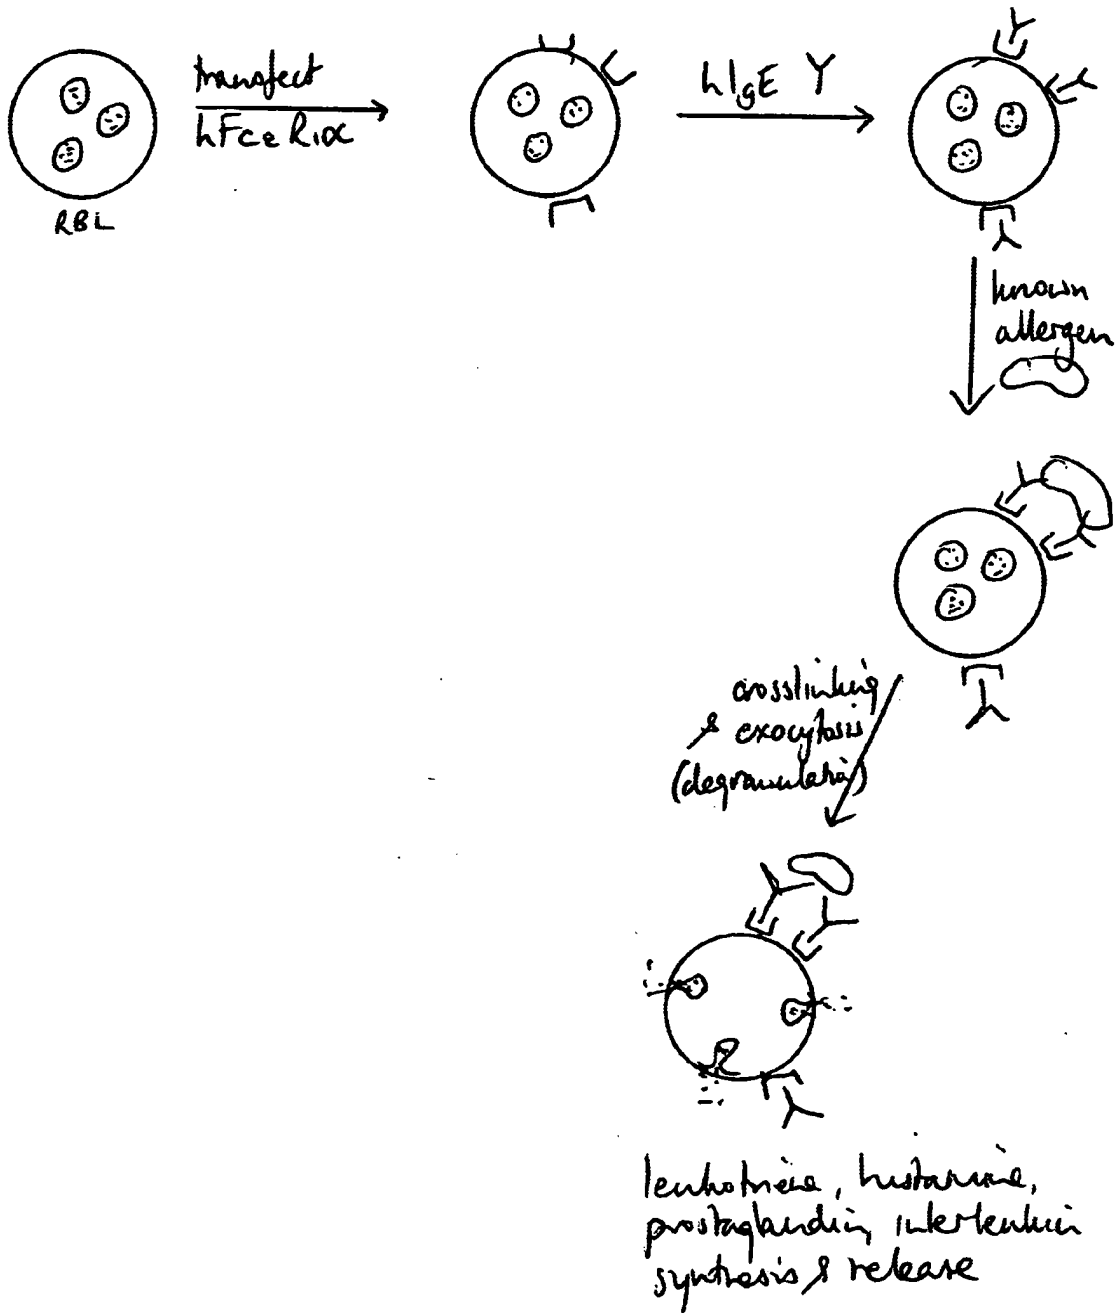 transfect
hFcε RIα
RBL
hIgE Y
known
allergen
crosslinking
& exocytosis
(degranulation)
leukotriene, histamine,
prostaglandin, interleukin
synthesis & release